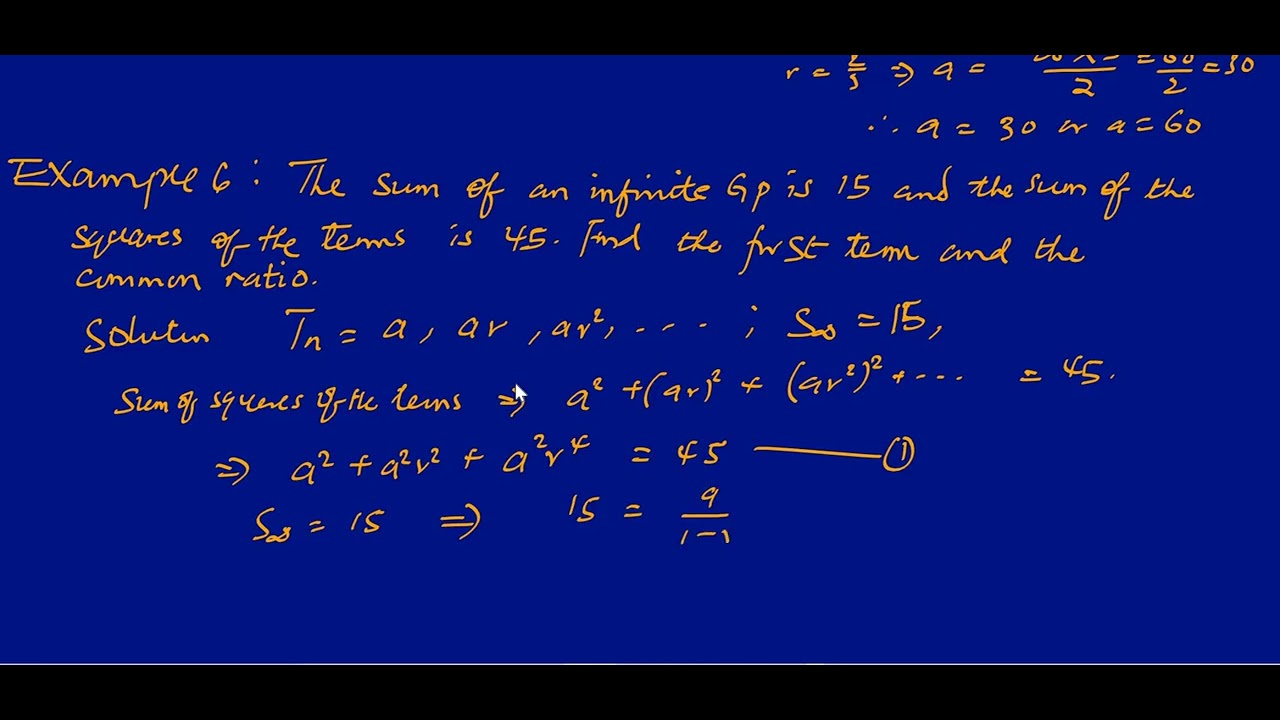 r = 2/3 ⇒ a = /2 = 60/2 = 30
∴ a = 30 or a = 60
Example 6 : The sum of an infinite GP is 15 and the sum of the
squares of the terms is 45. Find the first term and the
common ratio.
Solution Tn = a, ar, ar², .... ; S∞ = 15,
Sum of squares of the terms ⇒ a² + (ar)² + (ar²)² + ... = 45.
⇒ a² + a²r² + a²r⁴ = 45 ——— ①
S∞ = 15 ⇒ 15 = a/1-1